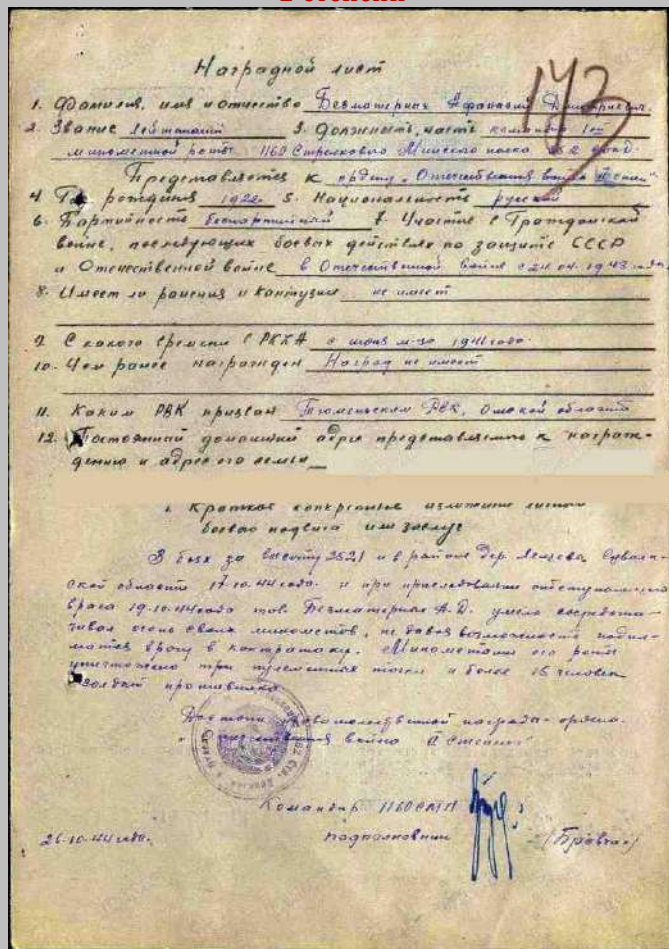 Наградной лист
143
1. Фамилия, имя и отчество Безматерных Афанасий Дмитриевич
2. Звание Лейтенант 3. Должность, часть командир 1ой
минометной роты 1160 Стрелкового Минского полка 352
Представляется к ордену „Отечественная война
4. Год рождения 1922 5. Национальность русский
6. Партийность беспартийный 7. Участие в Гражданской
войне, последующих боевых действиях по защите СССР
и Отечественной войне в Отечественной войне с 24.04.1943 года
8. Имеет ли ранения и контузии не имеет
9. С какого времени в РККА с июня м-ца 1941 года.
10. Чем ранее награжден Наград не имеет
11. Каким РВК призван Тюменьским РВК, Омской области
12. Постоянный домашний адрес представляемого к награж-
дению и адрес его семьи
Краткое конкретное изложение личного
боевого подвига или заслуг
В боях за высоту 252,1 и в районе дер. Сувалк-
ской области 17.10.44 года и при преследовании отступающего
врага 19.10.44 года тов. Безматерных А.Д. умело сосредота-
чивал огонь своих минометов, не давая возможности подни-
маться врагу в контратаку. Минометами его роты
уничтожено три пулеметных точки и более 15 человек
солдат противника.
Достоин правительственной награды - ордена
Отечественная война II степени"
Командир 1160 СМП
26.10.44 года. подполковник